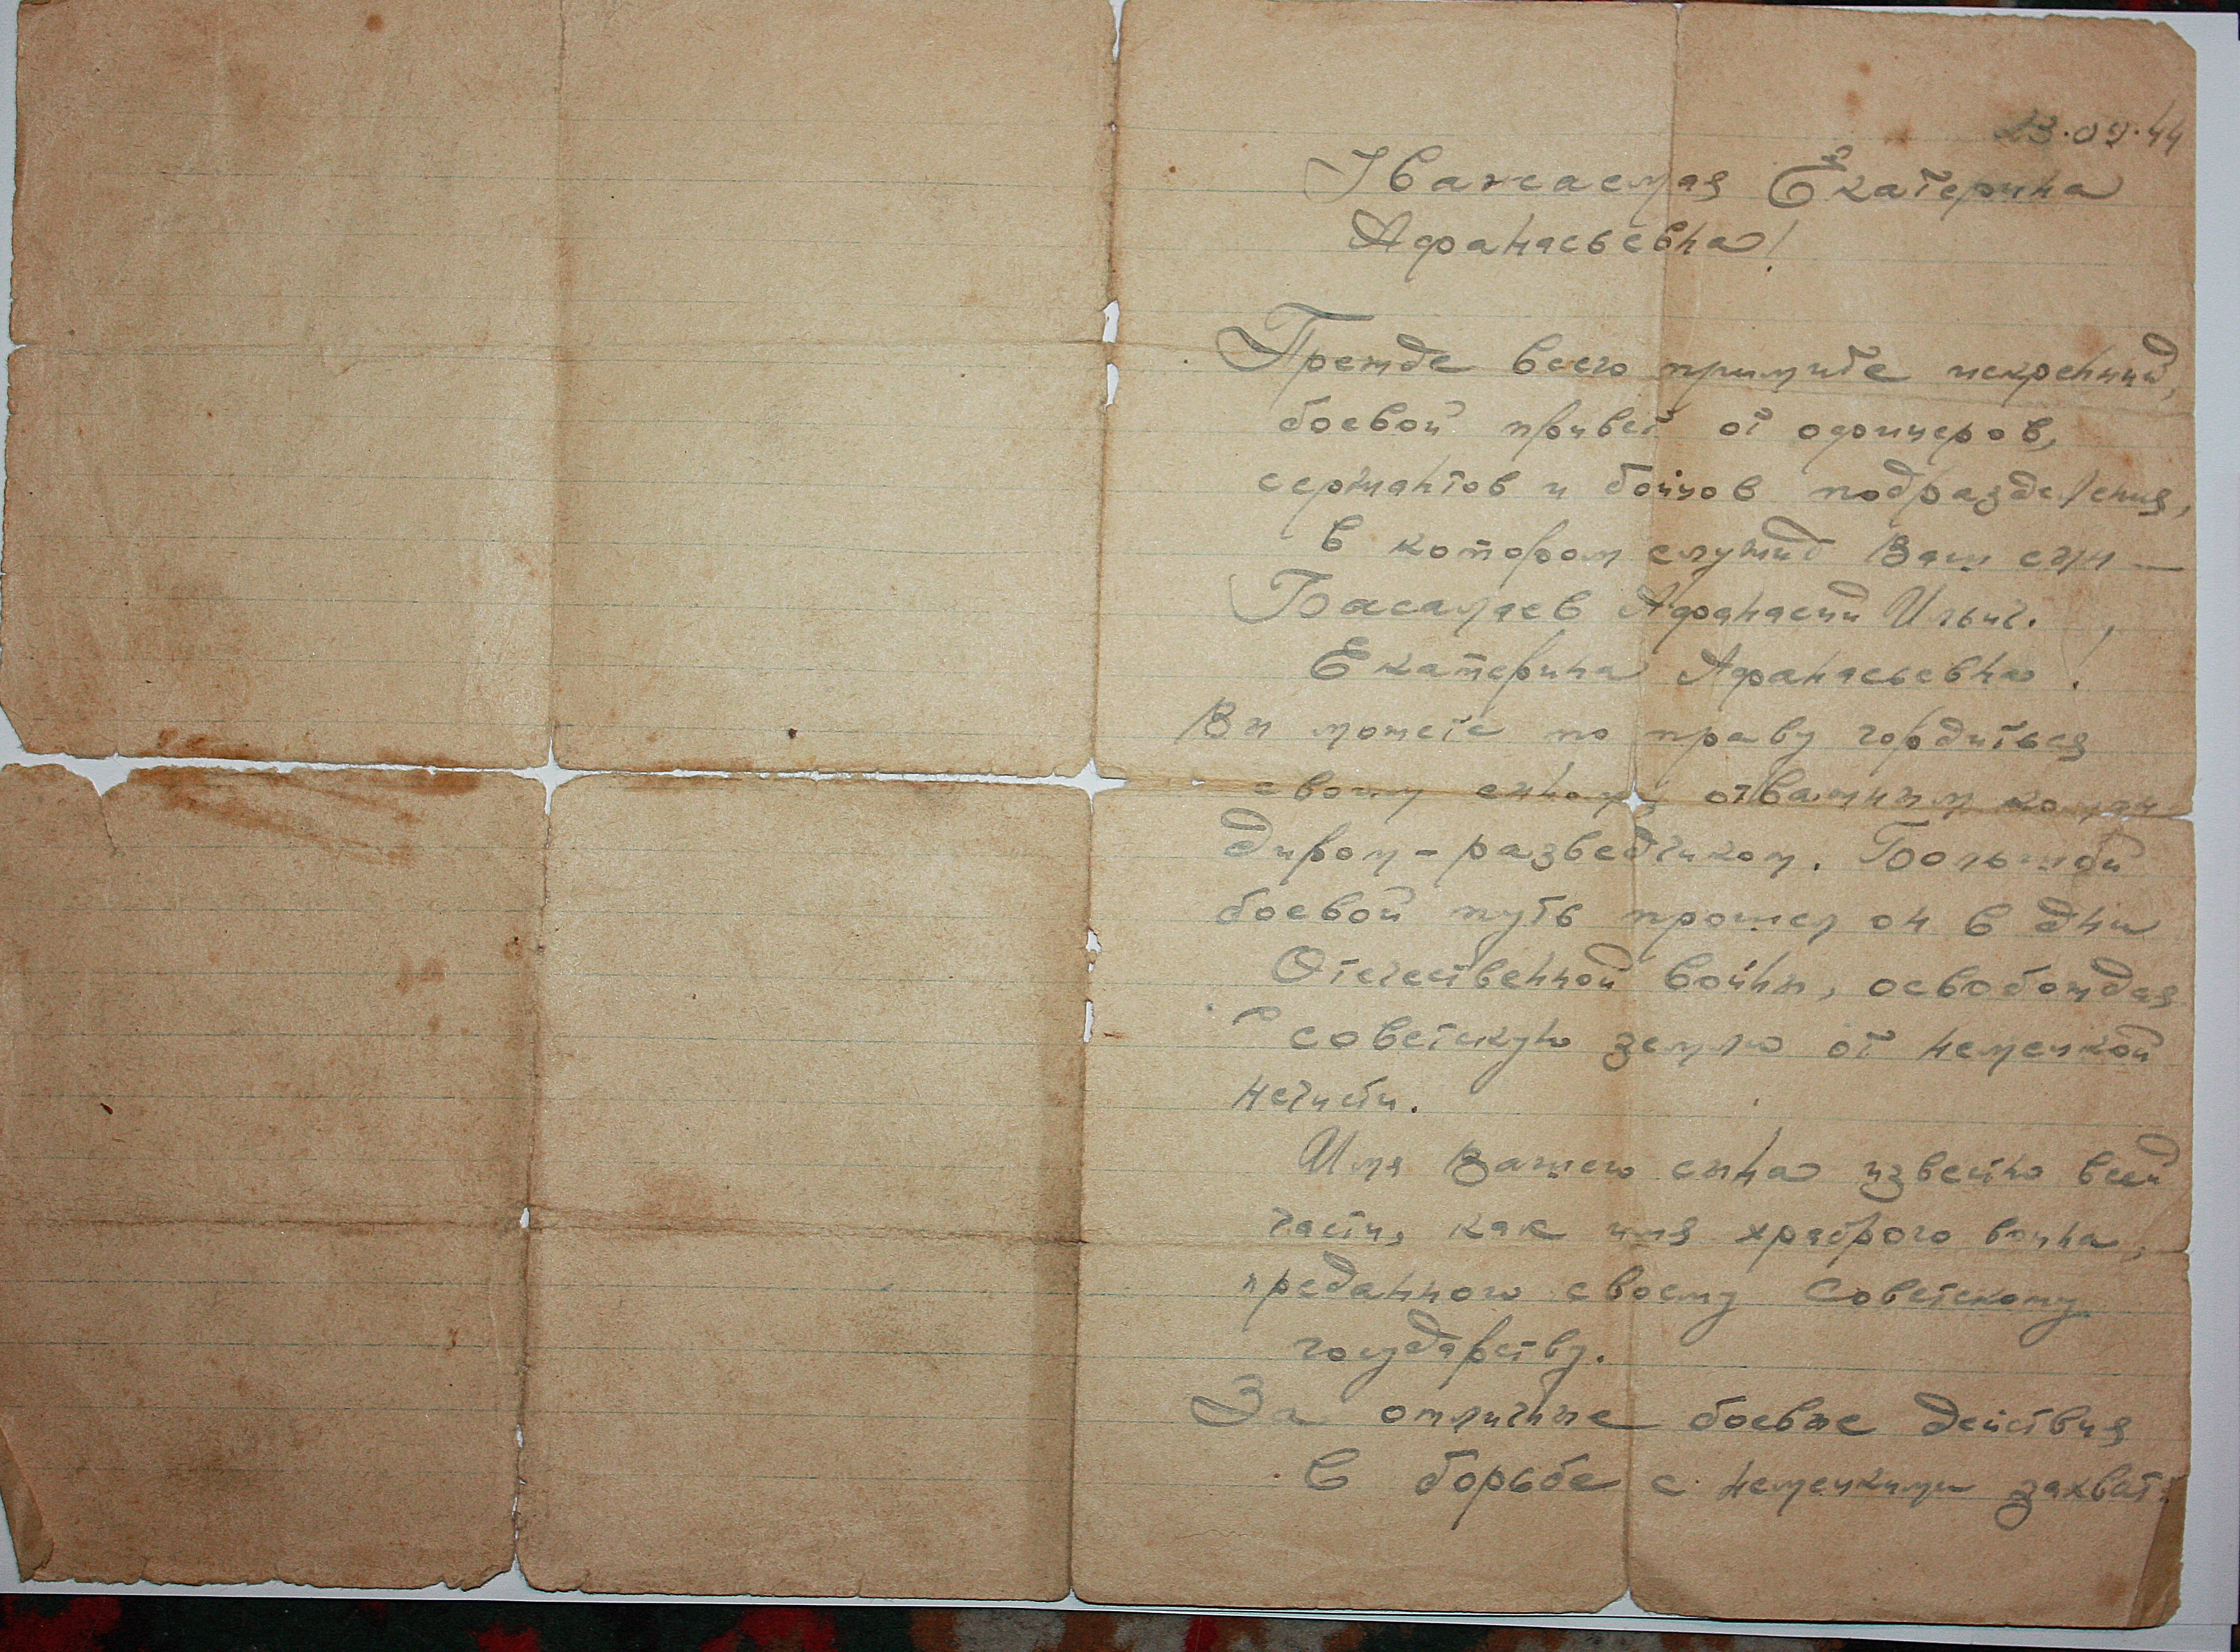 23.09.44
Уважаемая Екатерина
Афанасьевна!
Прежде всего примите искренний,
боевой привет от офицеров,
сержантов и бойцов подразделения,
в котором служит Ваш сын —
Басалаев Афанасий Ильич.
Екатерина Афанасьевна!
Вы можете по праву гордиться
своим сыном, отважным коман
диром-разведчиком. Большой
боевой путь прошел он в дни
Отечественной войны, освобождая
советскую землю от немецкой
нечисти.
Имя Вашего сына известно всей
части, как имя храброго воина,
преданного своему Советскому
государству.
За отличные боевые действия
в борьбе с немецкими захват